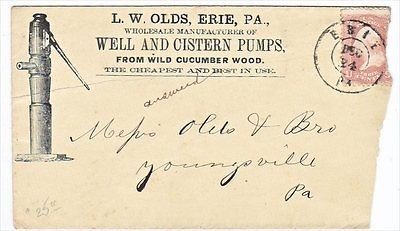 L. W. OLDS, ERIE, PA.,
WHOLESALE MANUFACTURER OF
WELL AND CISTERN PUMPS,
FROM WILD CUCUMBER WOOD.
THE CHEAPEST AND BEST IN USE.
ERIE
DEC
24
PA
answered
Mess Olds & Bro
Youngsville
Pa